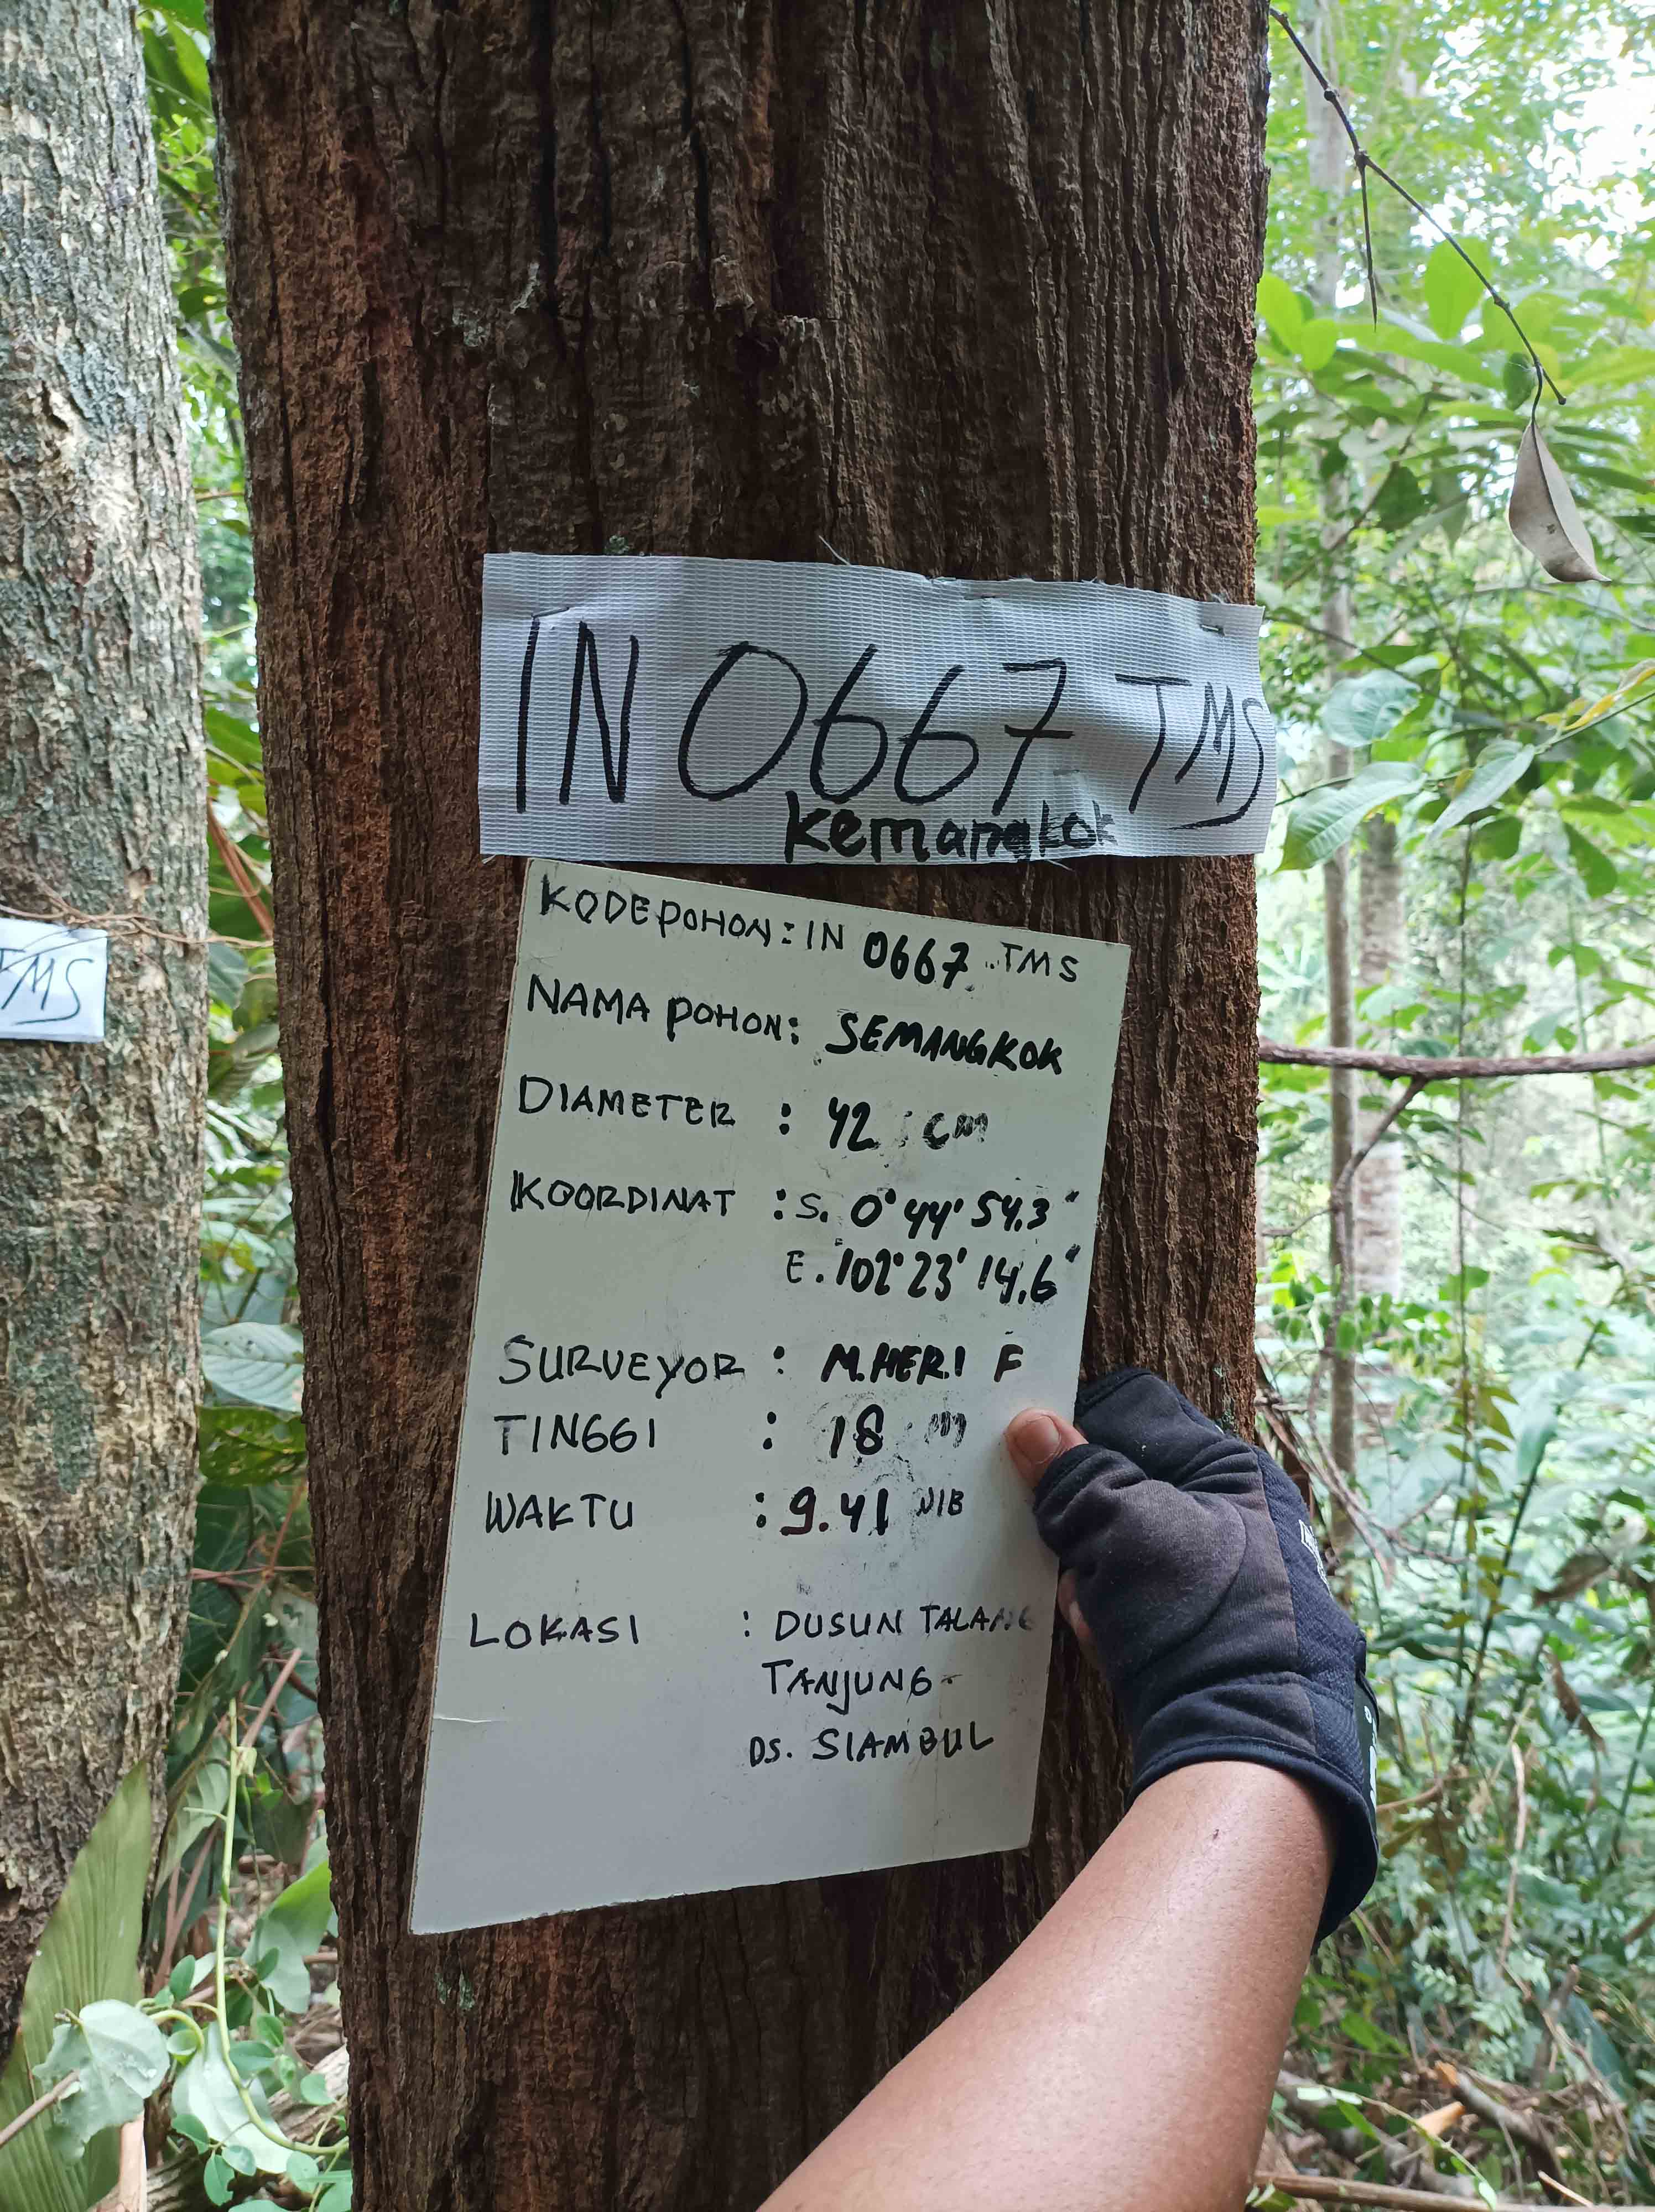 IN 0667 TMS
Kemangkok
TMS
KODE POHON : IN 0667 TMS
NAMA POHON : SEMANGKOK
DIAMETER : 42 cm
KOORDINAT : S. 0° 44' 54.3"
E. 102° 23' 14.6"
SURVEYOR : M. HERI F
TINGGI : 18 m
WAKTU : 9.41 WIB
LOKASI : DUSUN TALANG
TANJUNG
DS. SIAMBUL